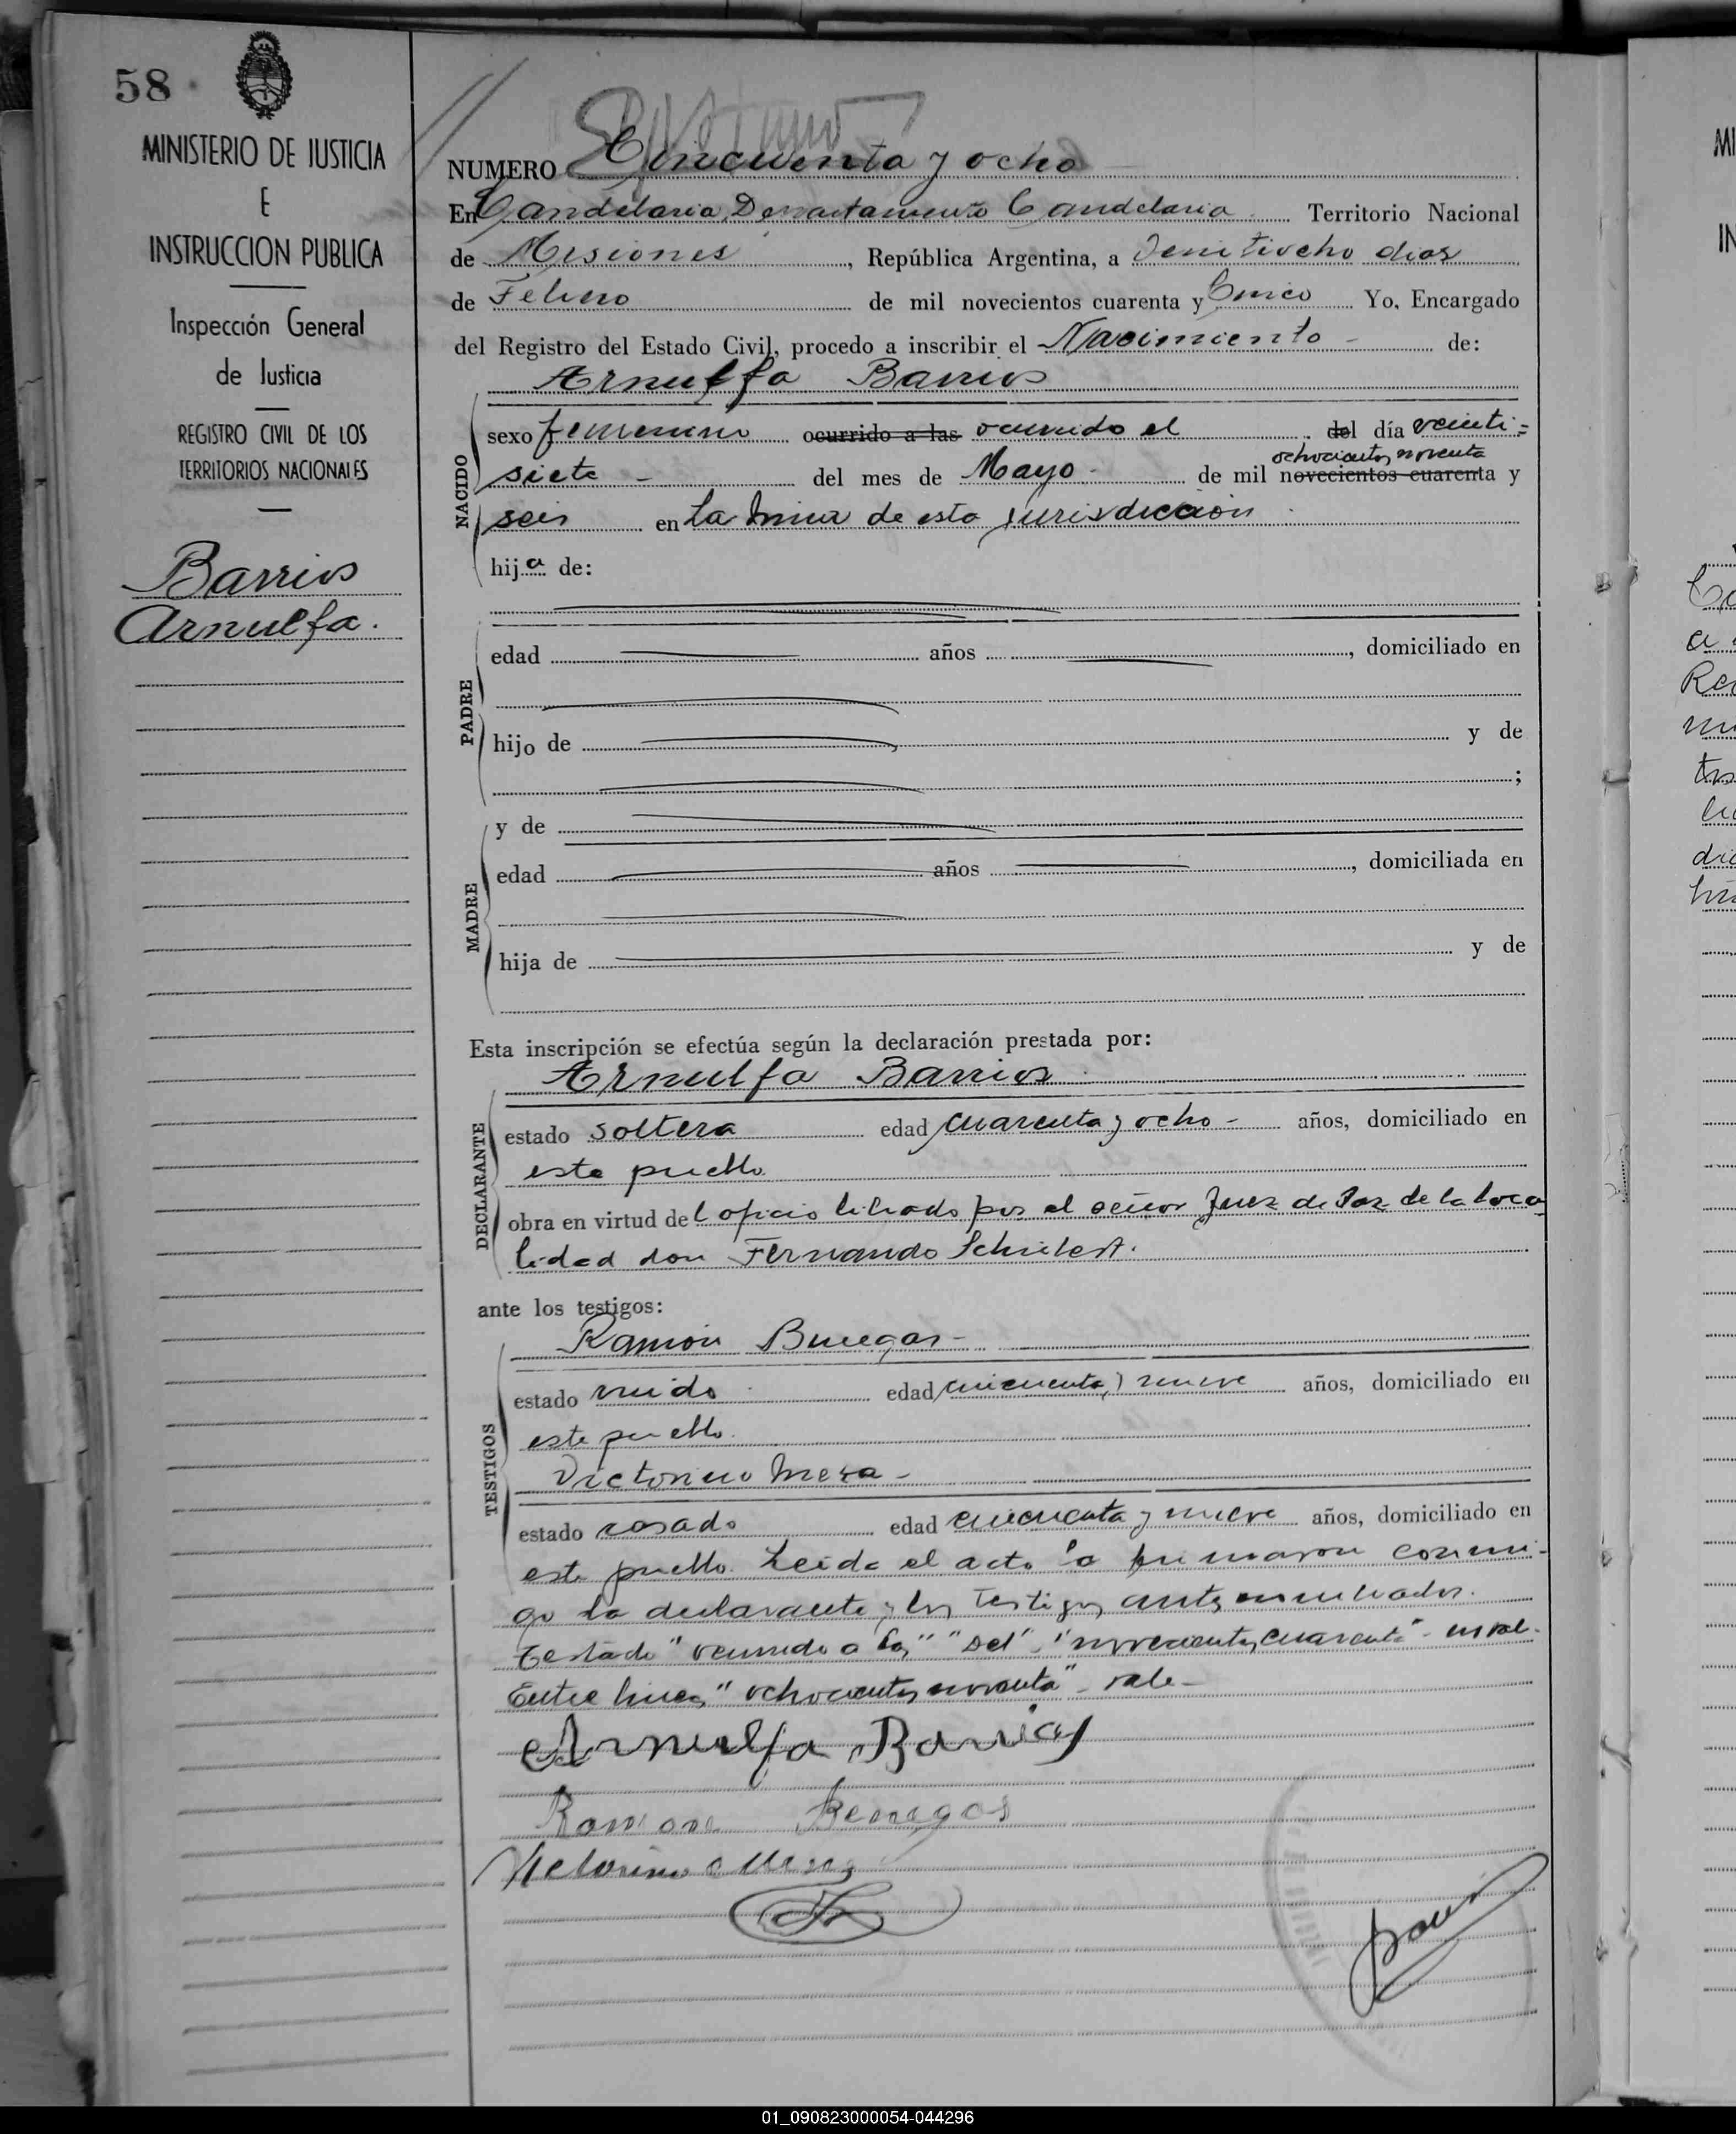 58
MINISTERIO DE JUSTICIA
E
INSTRUCCION PUBLICA
Inspección General
de Justicia
REGISTRO CIVIL DE LOS
TERRITORIOS NACIONALES
Barrios
Arnulfa.
NUMERO Cincuenta y ocho
En Candelaria, Departamento Candelaria Territorio Nacional
de Misiones, República Argentina, a Veintiocho dias
de Febrero de mil novecientos cuarenta y Cinco Yo, Encargado
del Registro del Estado Civil, procedo a inscribir el Nacimiento - de:
Arnulfa Barrios
NACIDO
sexo femenino ocurrido a las ocurrido el del día veinti=
ochocientos noventa
siete - del mes de Mayo - de mil novecientos cuarenta y
seis en La Mina de esta jurisdicción
hija de:
PADRE
edad años, domiciliado en
hijo de y de
;
MADRE
y de
edad años, domiciliada en
hija de y de
Esta inscripción se efectúa según la declaración prestada por:
Arnulfa Barrios
DECLARANTE
estado soltera edad cuarenta y ocho - años, domiciliado en
este pueblo
obra en virtud del oficio librado por el señor Juez de Paz de la loca
lidad don Fernando
ante los testigos:
TESTIGOS
Ramón Benegas -
estado viudo edad cincuenta y nueve años, domiciliado en
este pueblo.
Victorino Meza -
estado casado edad cincuenta y nueve años, domiciliado en
este pueblo. Leida el acta la firmaron conmi-
go la declarante y los testigos antes nombrados.
Testado "ocurrido a las" "del" - "novecientos cuarenta" - no vale -
Entre lineas "ochocientos noventa" - vale -
Arnulfa Barrios
Ramon Benegas
Victorino Meza
01_090823000054-044296